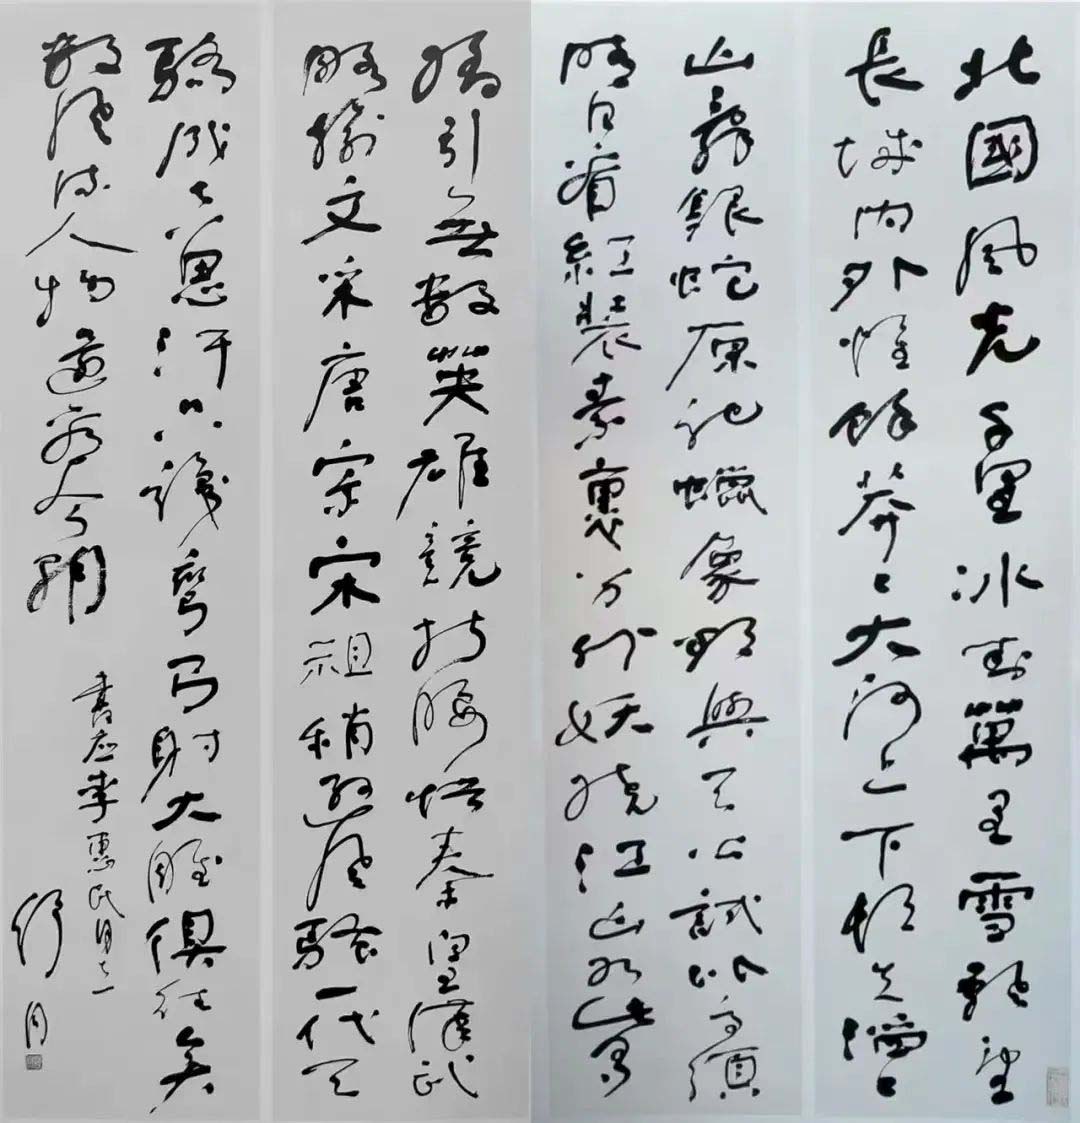 北國風光千里冰封萬里雪飄望
長城内外惟餘莽〻大河上下頓失滔〻
山舞銀蛇原馳蠟象欲與天公試比高須
晴日看紅裝素裹分外妖嬈江山如此多
嬌引無數英雄競折腰惜秦皇漢武
略輸文采唐宗宋祖稍遜風騷一代天
驕成吉思汗只識彎弓射大雕俱往矣
數風流人物還看今朝
書應李惠民同志
舒同